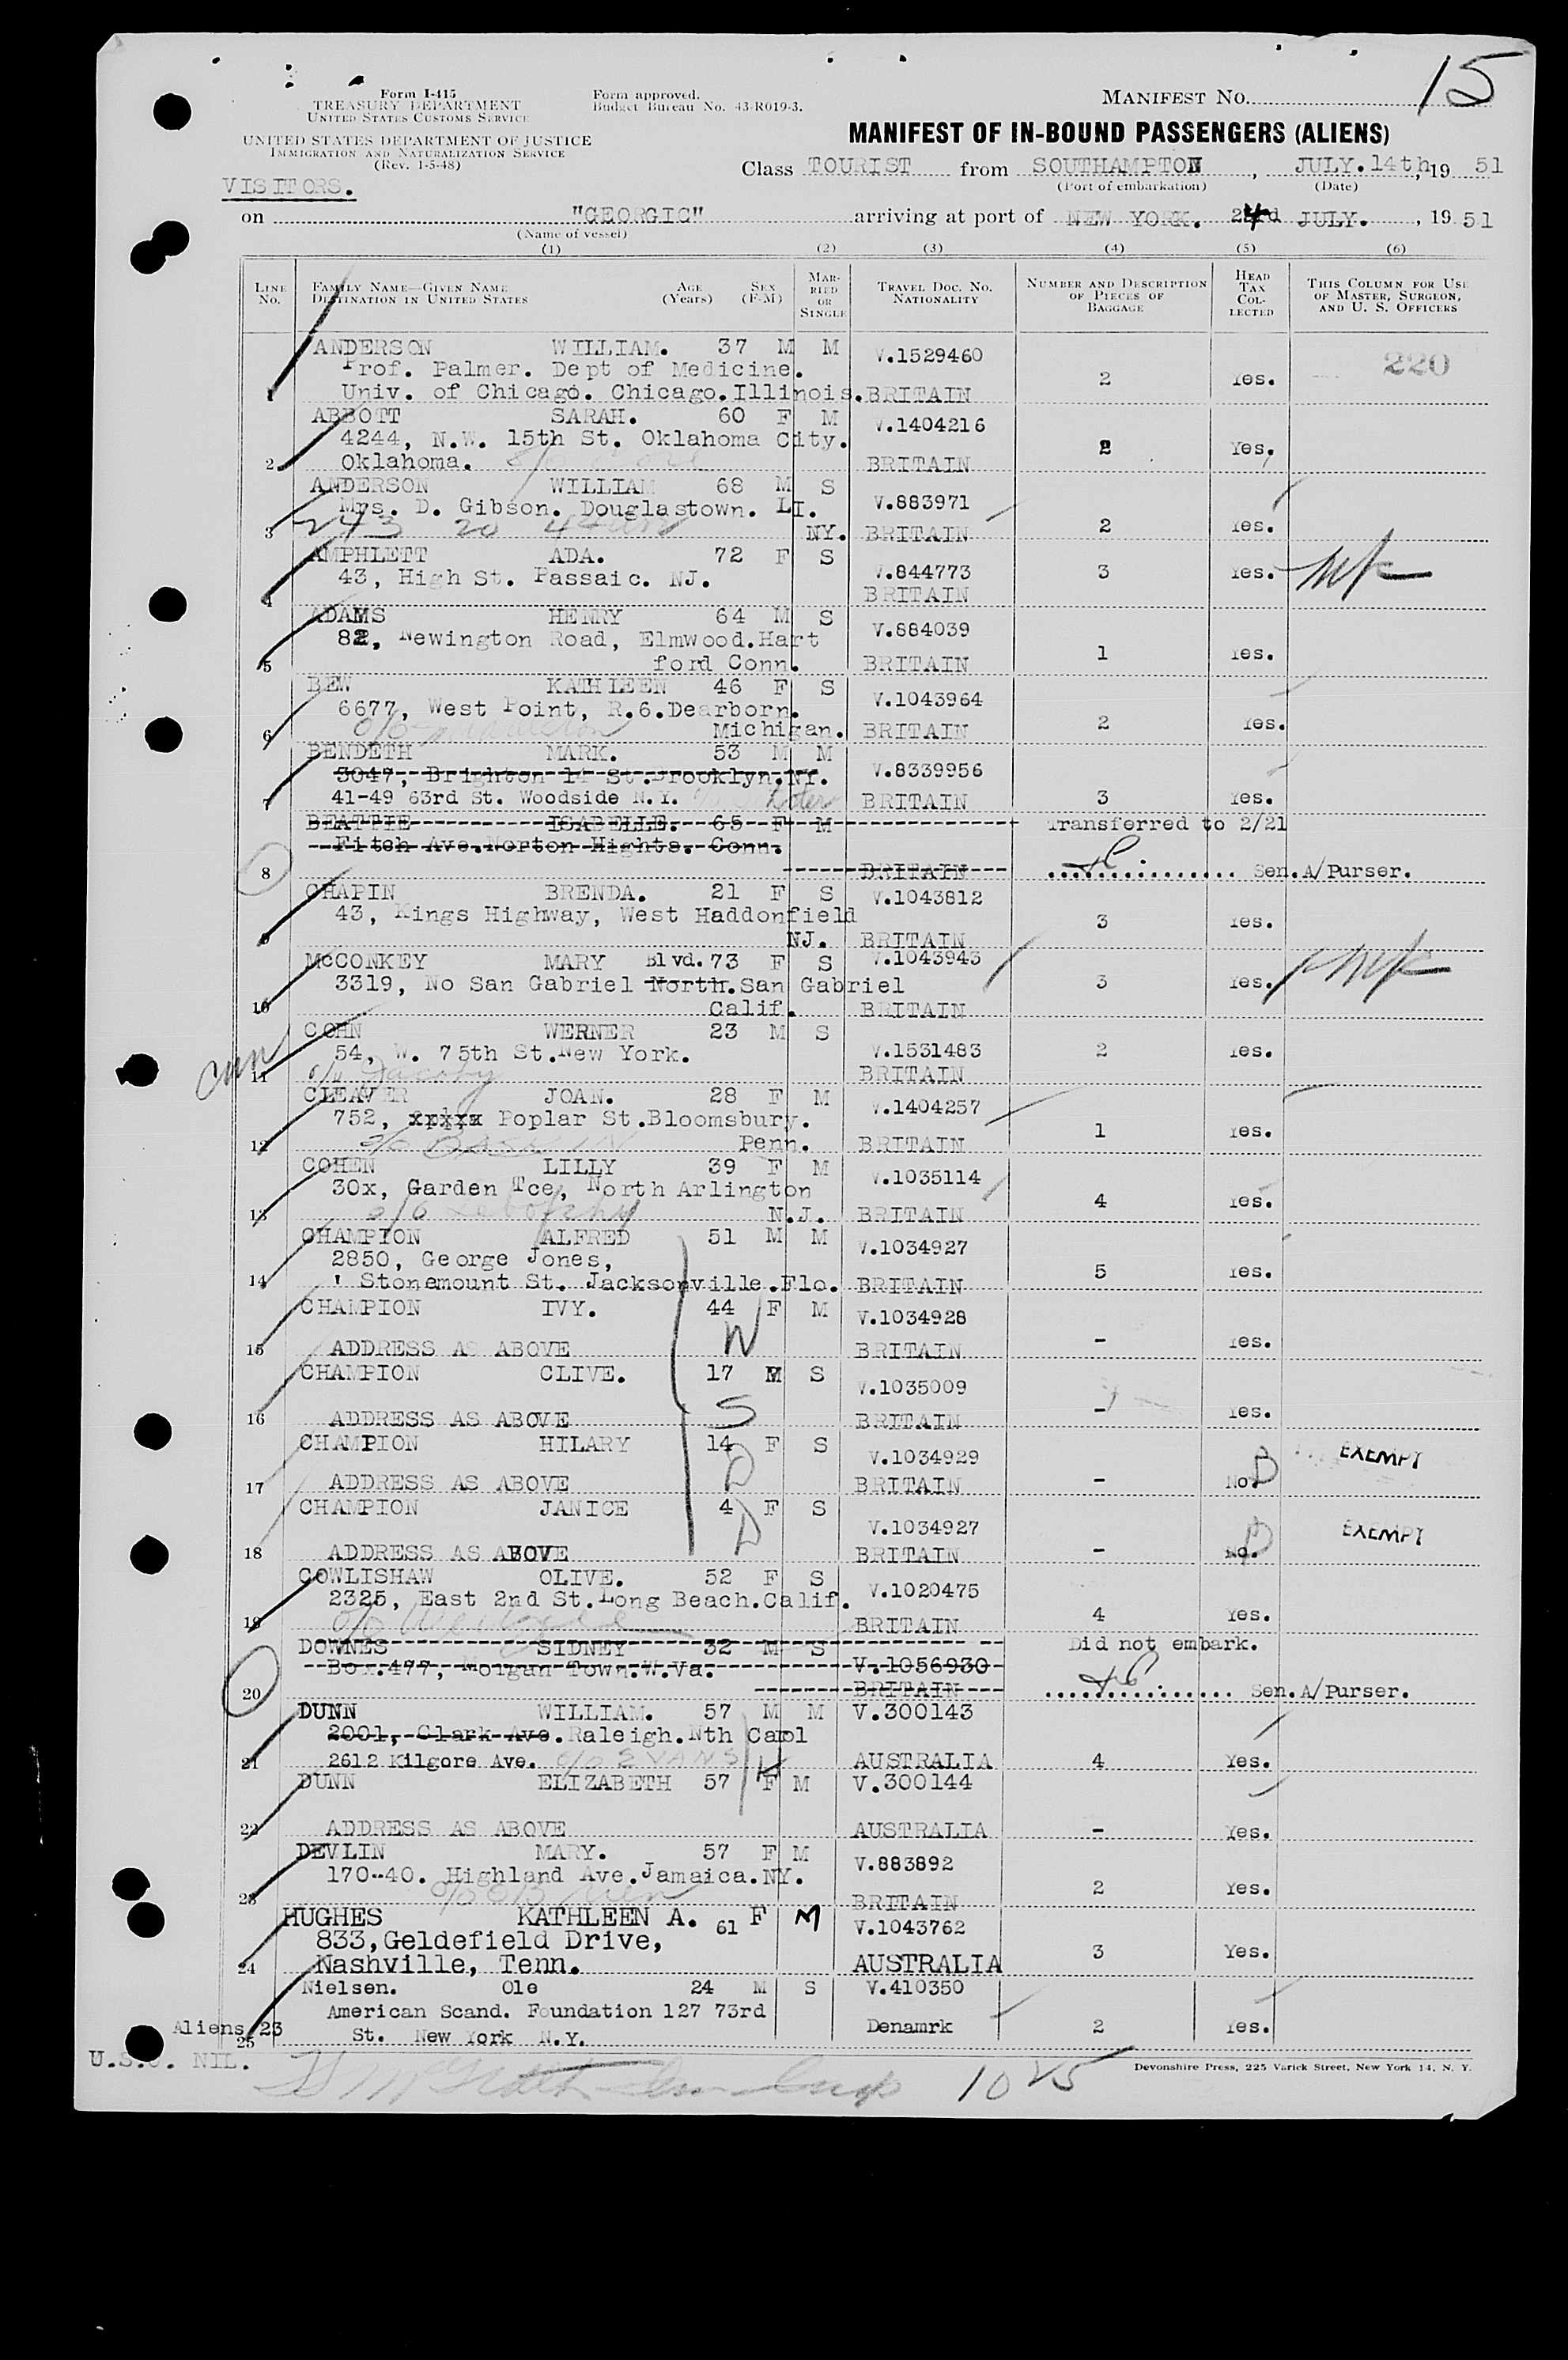 15
Form I-415
TREASURY DEPARTMENT
UNITED STATES CUSTOMS SERVICE
UNITED STATES DEPARTMENT OF JUSTICE
IMMIGRATION AND NATURALIZATION SERVICE
(Rev. 1-5-48)
Form approved.
Budget Bureau No. 43-R019-3.
MANIFEST NO.
MANIFEST OF IN-BOUND PASSENGERS (ALIENS)
Class TOURIST from SOUTHAMPTON, JULY.14th, 19 51
(Port of embarkation) (Date)
VISITORS.
on "GEORGIC" arriving at port of NEW YORK. 24 JULY. , 19 51
(Name of vessel)
(1) (2) (3) (4) (5) (6)
LINE NO.
FAMILY NAME—GIVEN NAME
DESTINATION IN UNITED STATES
AGE (Years)
SEX (F-M)
MARRIED OR SINGLE
TRAVEL DOC. NO. NATIONALITY
NUMBER AND DESCRIPTION OF PIECES OF BAGGAGE
HEAD TAX COLLECTED
THIS COLUMN FOR USE OF MASTER, SURGEON, AND U. S. OFFICERS
ANDERSON WILLIAM. 37 M M V.1529460 220
Prof. Palmer. Dept of Medicine. 2 Yes.
1 Univ. of Chicago. Chicago.Illinois. BRITAIN
ABBOTT SARAH. 60 F M V.1404216
4244, N.W. 15th St. Oklahoma City. 2 Yes.
2 Oklahoma. BRITAIN
ANDERSON WILLIAM 68 M S V.883971
Mrs. D. Gibson. Douglastown. LI.
3 243 20 NY. BRITAIN 2 Yes.
AMPHLETT ADA. 72 F S V.844773 3 Yes.
43, High St. Passaic. NJ.
4 BRITAIN
ADAMS HENRY 64 M S V.884039
82, Newington Road, Elmwood.Hart
5 ford Conn. BRITAIN 1 Yes.
BEW KATHLEEN 46 F S V.1043964
6677, West Point, R.6.Dearborn.
6 Michigan. BRITAIN 2 Yes.
BENDETH MARK. 53 M M V.8339956
3047, Brighton 14 St.Brooklyn.NY.
7 41-49 63rd St. Woodside N.Y. BRITAIN 3 Yes.
BEATTIE ISABELLE. 65 F M Transferred to 2/21
Fitch Ave.Norton Hights. Conn.
8 BRITAIN Sen.A/Purser.
CHAPIN BRENDA. 21 F S V.1043812
43, Kings Highway, West Haddonfield 3 Yes.
9 NJ. BRITAIN
McCONKEY MARY Blvd. 73 F S V.1043943
3319, No San Gabriel North.San Gabriel 3 Yes.
10 Calif. BRITAIN
COHN WERNER 23 M S
54, W. 75th St.New York. V.1531483 2 Yes.
11 c/o Jacoby BRITAIN
CLEAVER JOAN. 28 F M V.1404257
752, xpxxx Poplar St.Bloomsbury. 1 Yes.
12 Penn. BRITAIN
COHEN LILLY 39 F M V.1035114
30x, Garden Tce, North Arlington 4 Yes.
13 N.J. BRITAIN
CHAMPION ALFRED 51 M M V.1034927
2850, George Jones, 5 Yes.
14 ' Stonemount St. Jacksonville.Flo. BRITAIN
CHAMPION IVY. 44 F M V.1034928
15 ADDRESS AS ABOVE W BRITAIN - Yes.
CHAMPION CLIVE. 17 M S V.1035009
16 ADDRESS AS ABOVE S BRITAIN - Yes.
CHAMPION HILARY 14 F S V.1034929 EXEMPT
17 ADDRESS AS ABOVE D BRITAIN - No.
CHAMPION JANICE 4 F S V.1034927 EXEMPT
18 ADDRESS AS ABOVE D BRITAIN - No.
COWLISHAW OLIVE. 52 F S V.1020475
2325, East 2nd St.Long Beach.Calif. 4 Yes.
19 BRITAIN
DOWNES SIDNEY 32 M S Did not embark.
Box.477, Morgan Town.W.Va. V.1056930
20 BRITAIN Sen.A/Purser.
DUNN WILLIAM. 57 M M V.300143
2001, Clark Ave.Raleigh.Nth Carol
21 2612 Kilgore Ave. c/o EVANS AUSTRALIA 4 Yes.
DUNN ELIZABETH 57 F M V.300144
22 ADDRESS AS ABOVE AUSTRALIA - Yes.
DEVLIN MARY. 57 F M V.883892
170-40. Highland Ave.Jamaica.NY. 2 Yes.
23 BRITAIN
HUGHES KATHLEEN A. 61 F M V.1043762
833,Geldefield Drive, 3 Yes.
24 Nashville, Tenn. AUSTRALIA
Nielsen. Ole 24 M S V.410350
American Scand. Foundation 127 73rd
25 St. New York N.Y. Denamrk 2 Yes.
Aliens 23
U.S.C. NIL.
1025
Devonshire Press, 225 Varick Street, New York 14, N. Y.